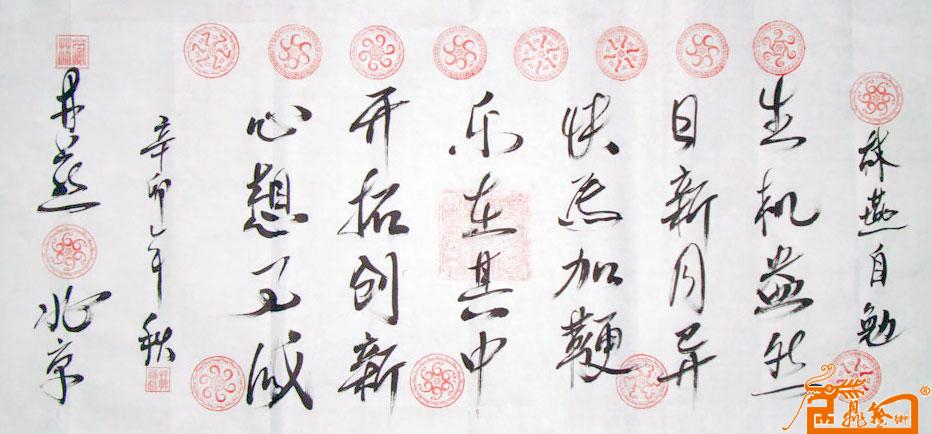 燕自勉
生机盎然
日新月异
快马加鞭
乐在其中
开拓创新
心想事成
辛卯年秋
燕
北京